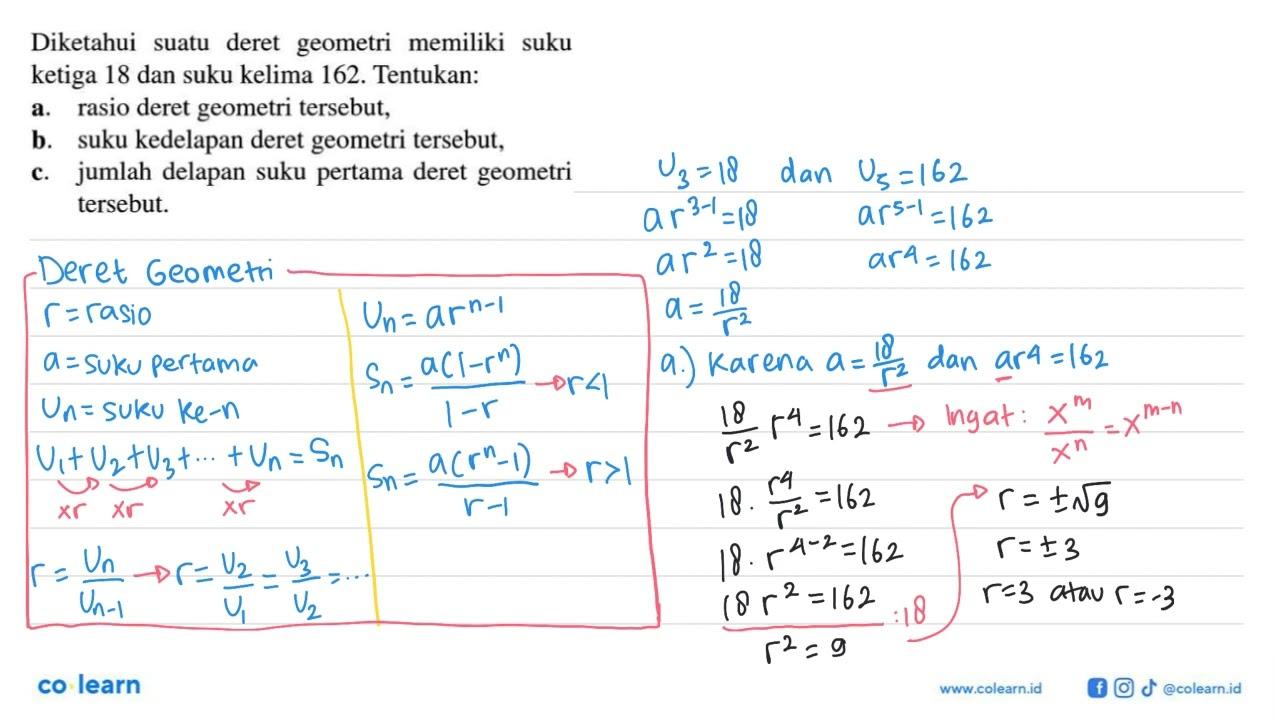 Diketahui suatu deret geometri memiliki suku
ketiga 18 dan suku kelima 162. Tentukan:
a. rasio deret geometri tersebut,
b. suku kedelapan deret geometri tersebut,
c. jumlah delapan suku pertama deret geometri
tersebut.
Deret Geometri
r = rasio
a = suku pertama
Uₙ = suku ke-n
U₁ + U₂ + U₃ + ... + Uₙ = Sₙ
xr xr xr
r = Uₙ/Uₙ₋₁ → r = U₂/U₁ = U₃/U₂ = ...
Uₙ = arⁿ⁻¹
Sₙ = a(1-rⁿ)/(1-r) → r<1
Sₙ = a(rⁿ-1)/(r-1) → r>1
U₃ = 18 dan U₅ = 162
ar³⁻¹ = 18 ar⁵⁻¹ = 162
ar² = 18 ar⁴ = 162
a = 18/r²
a.) Karena a = 18/r² dan ar⁴ = 162
18/r² r⁴ = 162 → Ingat: xᵐ/xⁿ = xᵐ⁻ⁿ
18 . r⁴/r² = 162
18 . r⁴⁻² = 162
18 r² = 162 :18
r² = 9
r = ±√9
r = ±3
r = 3 atau r = -3
co learn
www.colearn.id
@colearn.id